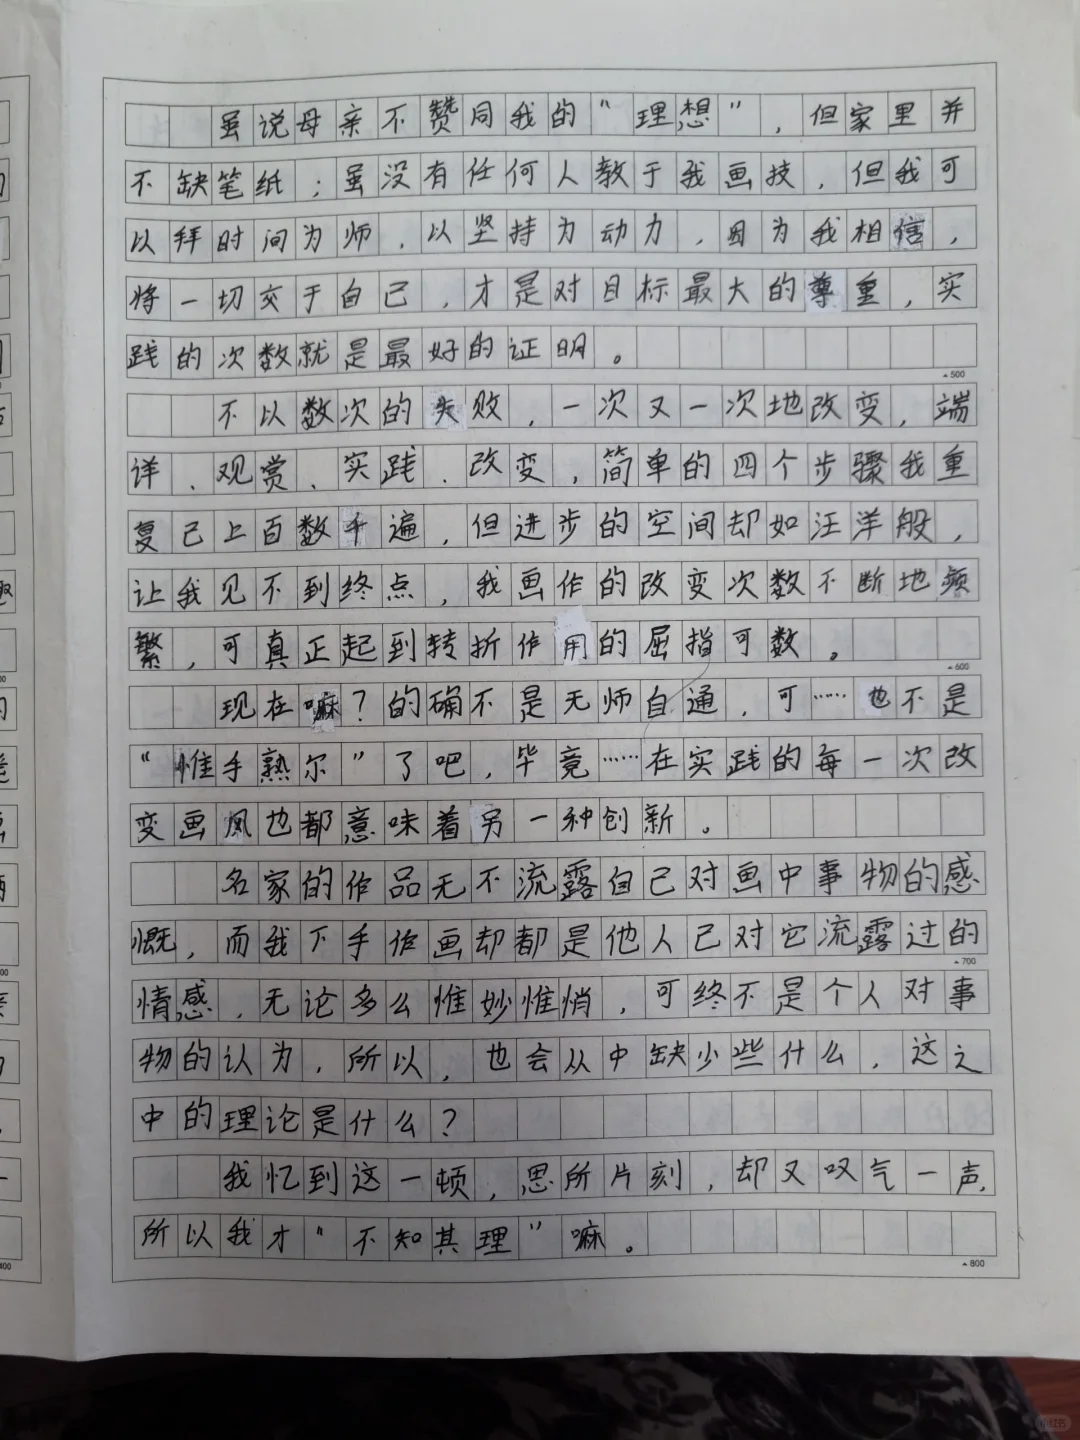 虽说母亲不赞同我的“理想”，但家里并
不缺笔纸；虽没有任何人教于我画技，但我可
以拜时间为师，以坚持为动力，因为我相信，
将一切交于自己，才是对目标最大的尊重，实
践的次数就是最好的证明。
500
不以数次的失败，一次又一次地改变，端
详、观赏、实践、改变，简单的四个步骤我重
复已上百数千遍，但进步的空间却如汪洋般，
让我见不到终点，我画作的改变次数不断地频
繁，可真正起到转折作用的屈指可数。
600
现在嘛？的确不是无师自通，可……也不是
“惟手熟尔”了吧，毕竟……在实践的每一次改
变画风也都意味着另一种创新。
名家的作品无不流露自己对画中事物的感
慨，而我下手作画却都是他人已对它流露过的
700
情感，无论多么惟妙惟悄，可终不是个人对事
物的认为，所以，也会从中缺少些什么，这之
中的理论是什么？
我忆到这一顿，思所片刻，却又叹气一声，
所以我才“不知其理”嘛。
800
小红书